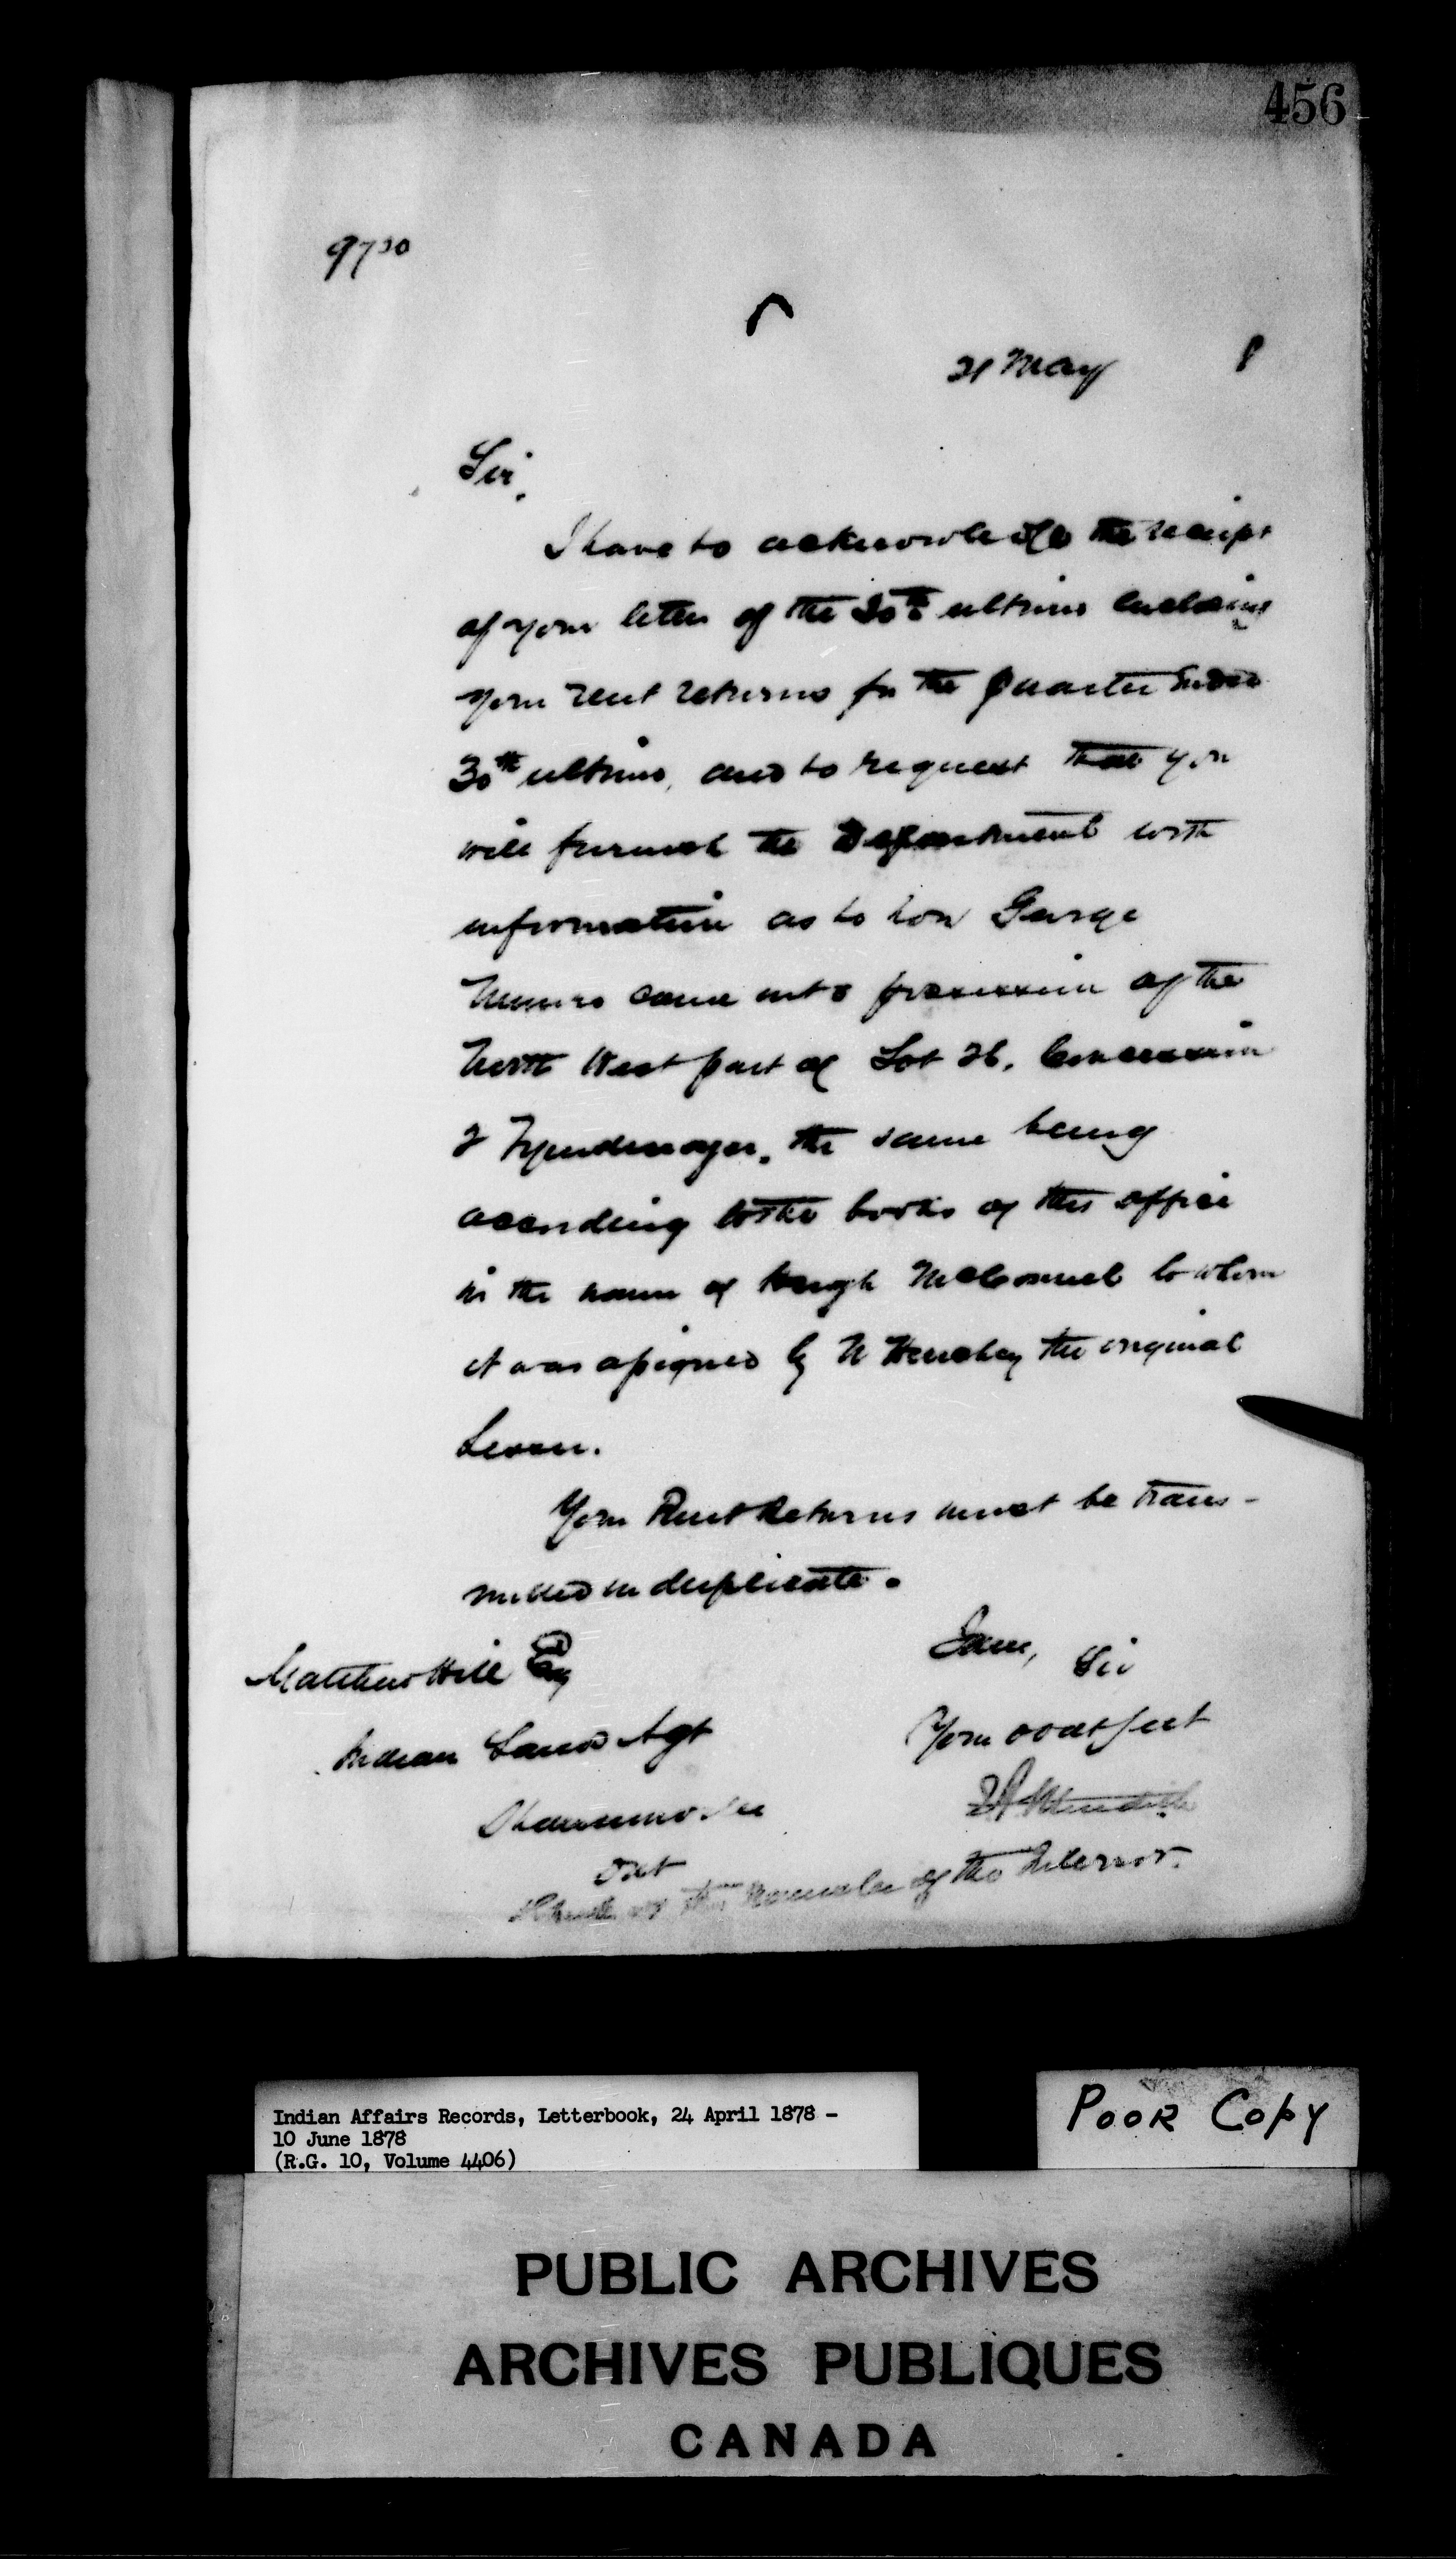 456
9730
21 May 8
Sir,
I have to acknowledge the receipt
of your letter of the 30th ultimo enclosing
your rent returns for the Quarter Ended
30th ultimo, and to request that you
will furnish the Department with
information as to how George
Munro came into possession of the
North West part of Lot 26, Concession
2 Tyendinaga, the same being
according to the books of this office
in the name of Hugh McConnel to whom
it was assigned by the original
Lessee.
Your Rent Returns must be trans-
mitted in duplicate.
Matthew Hill Esq
Indian Land Agt
Shannonville
Ont
I am, Sir
Your obedt Servt
Meredith
of the Minister of the Interior.
Indian Affairs Records, Letterbook, 24 April 1878 -
10 June 1878
(R.G. 10, Volume 4406)
POOR COPY
PUBLIC ARCHIVES
ARCHIVES PUBLIQUES
CANADA